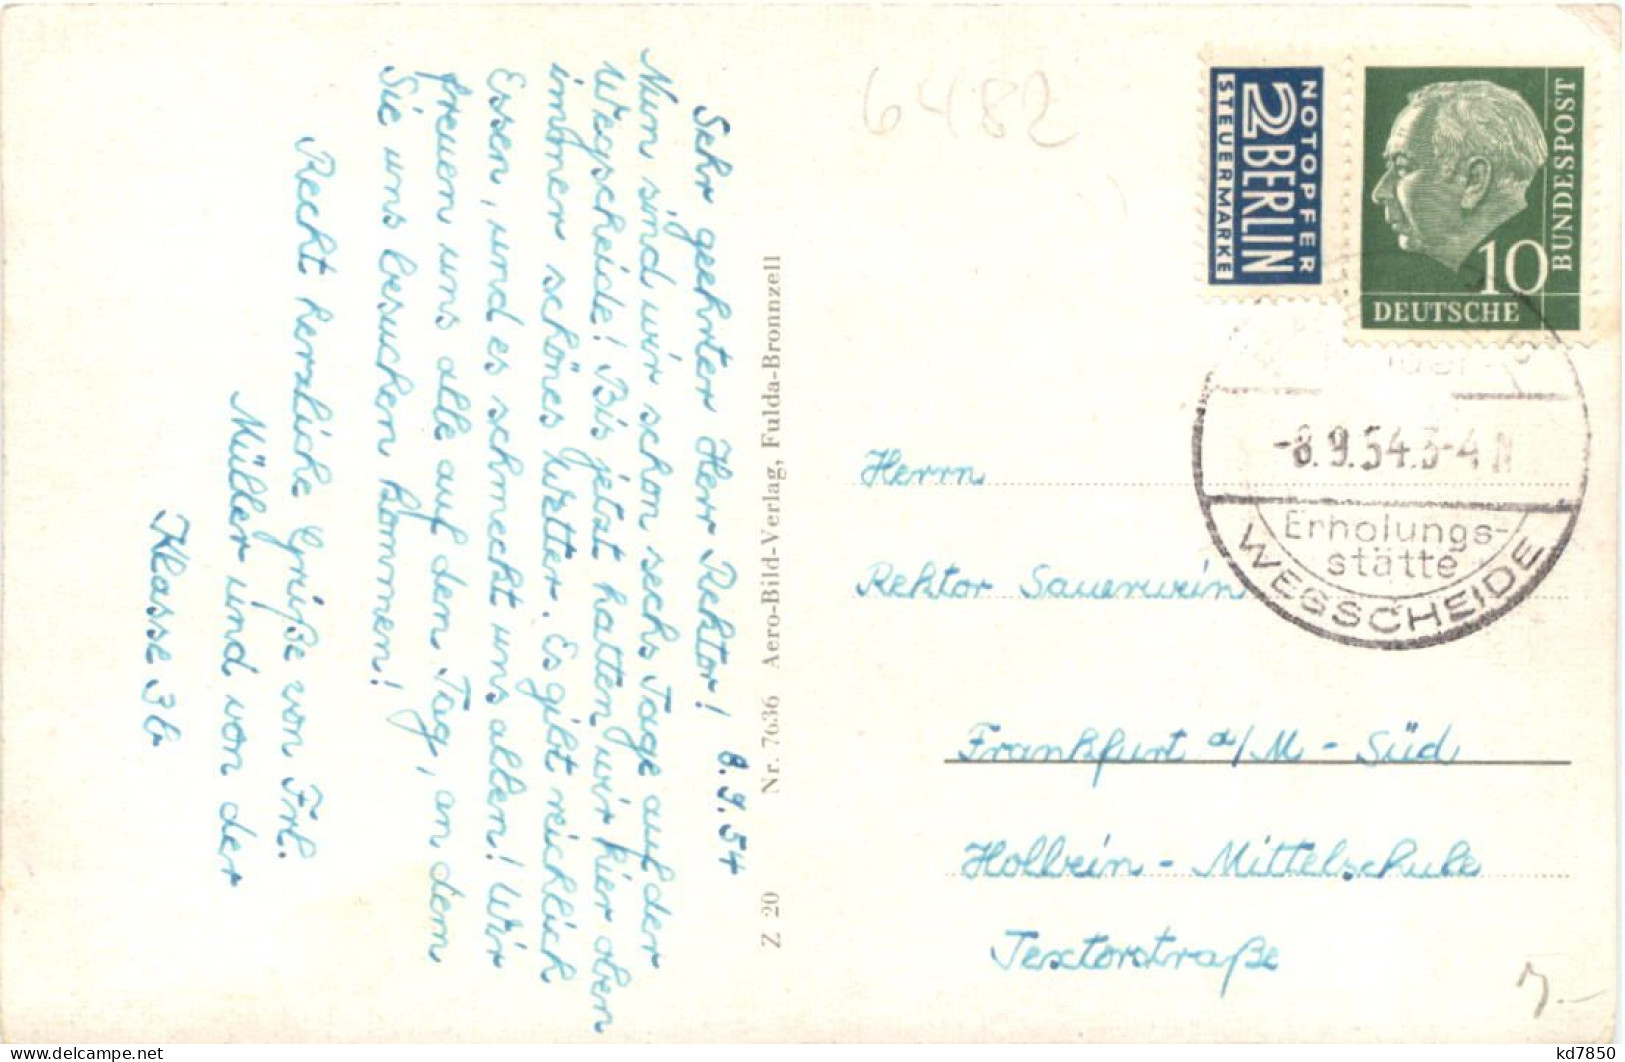 Sehr geehrter Herr Rektor! 8.9.54
Nun sind wir schon sechs Tage auf der
Wegscheide! Bis jetzt hatten wir hier oben
immer schönes Wetter. Es gibt reichlich
Essen, und es schmeckt uns allen! Wir
freuen uns alle auf den Tag, an dem
Sie uns besuchen kommen!
Recht herzliche Grüße von Frl.
Müller und von der
Klasse 3b
Z 20 Nr. 7636 Aero-Bild-Verlag, Fulda-Bronnzell
6482
NOTOPFER
2 BERLIN
STEUERMARKE
10
DEUTSCHE
BUNDESPOST
-8.9.54.3-4 N
Erholungs-
stätte
WEGSCHEIDE
Herrn
Rektor Sauerwein
Frankfurt a/M - Süd
Holbein - Mittelschule
Textorstraße
kd7850